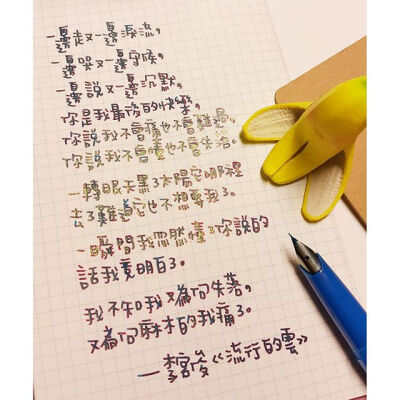 一邊走又一邊淚流,
一邊哭又一邊守候,
一邊說又一邊沉默,
你是我最後的快樂。
你說我不會痛也不會難過,
你說我不會懂也不會失落,
一轉眼天黑了太陽它哪裡
去了難道它也不想要我了。
一瞬間我忽然懂了你說的
話我竟明白了。
我不知我又為何失落,
又為何麻木的我痛了。
—李客後《流行的雲》